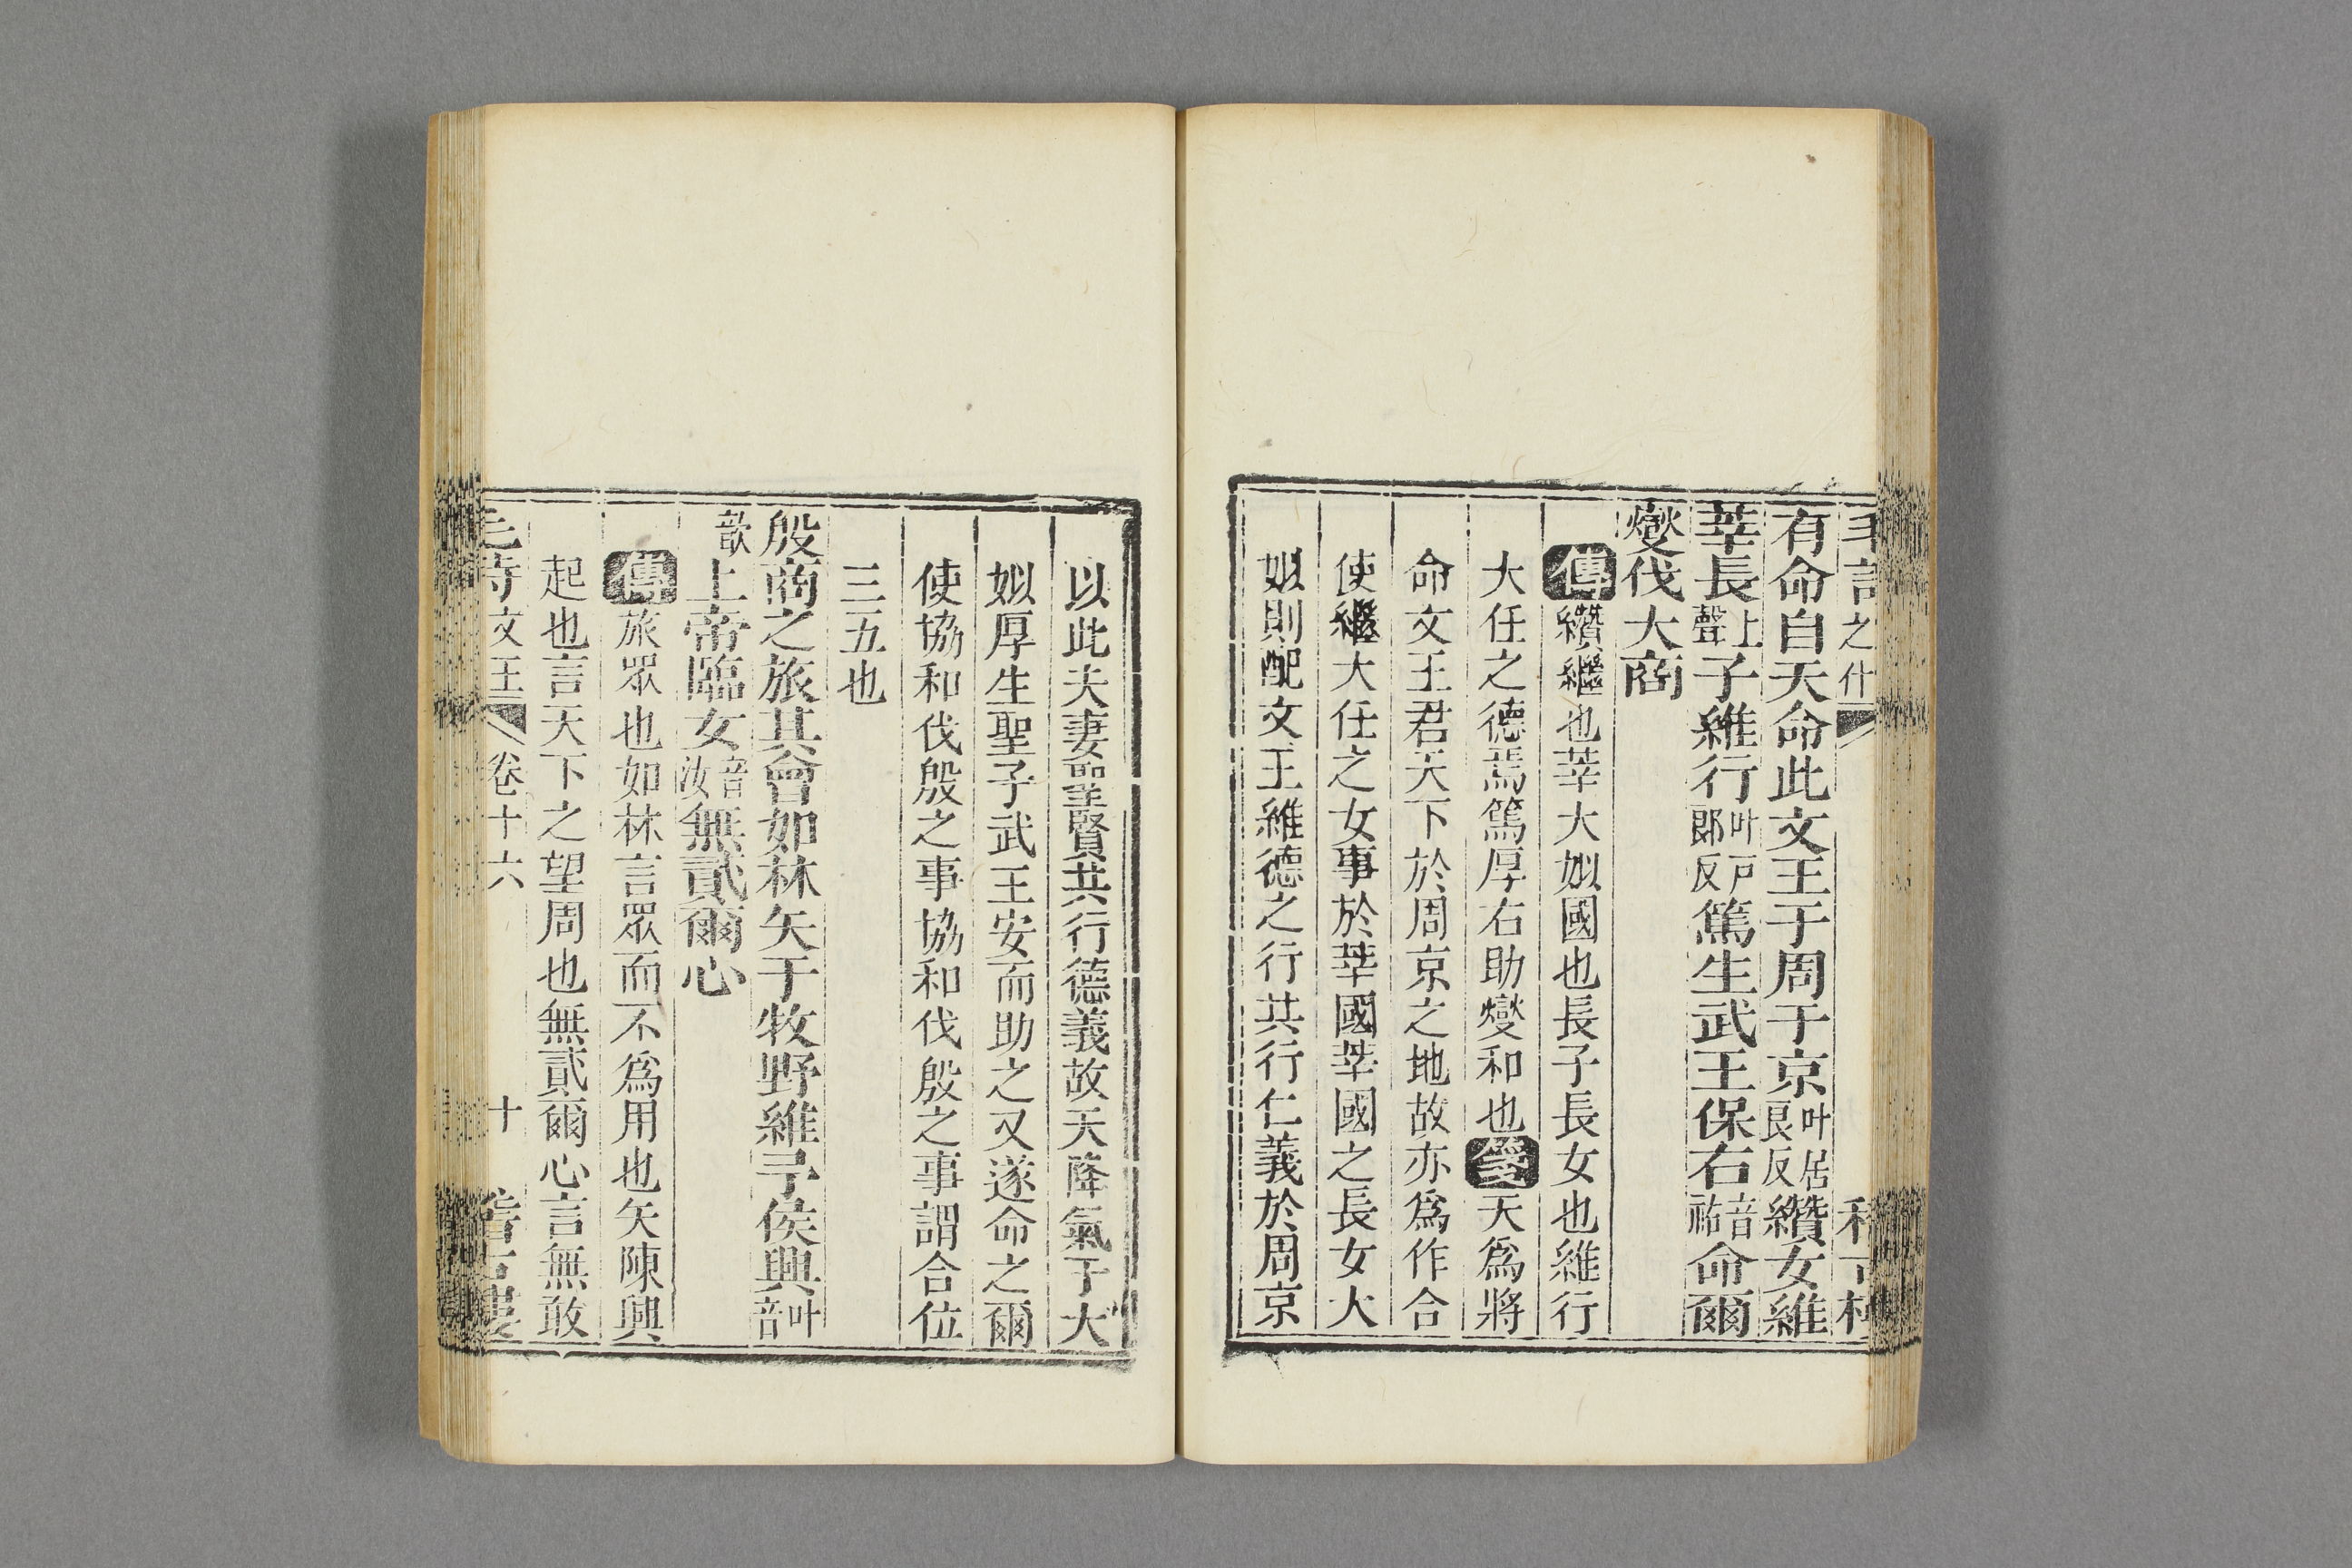 有命自天命此文王于周于京叶居良反纘女維
莘長上聲子維行叶戸郎反篤生武王保右音祐命爾
燮伐大商
傳纘繼也莘大姒國也長子長女也維行
大任之德焉篤厚右助燮和也箋天爲將
命文王君天下於周京之地故亦爲作合
使繼大任之女事於莘國莘國之長女大
姒則配文王維德之行共行仁義於周京
以此夫妻聖賢共行德義故天降氣于大
姒厚生聖子武王安而助之又遂命之爾
使協和伐殷之事協和伐殷之事謂合位
三五也
殷商之旅其會如林矢于牧野維予侯興叶音
歆上帝臨女音汝無貳爾心
傳旅眾也如林言眾而不爲用也矢陳興
起也言天下之望周也無貳爾心言無敢
毛詩文王 卷十六 十